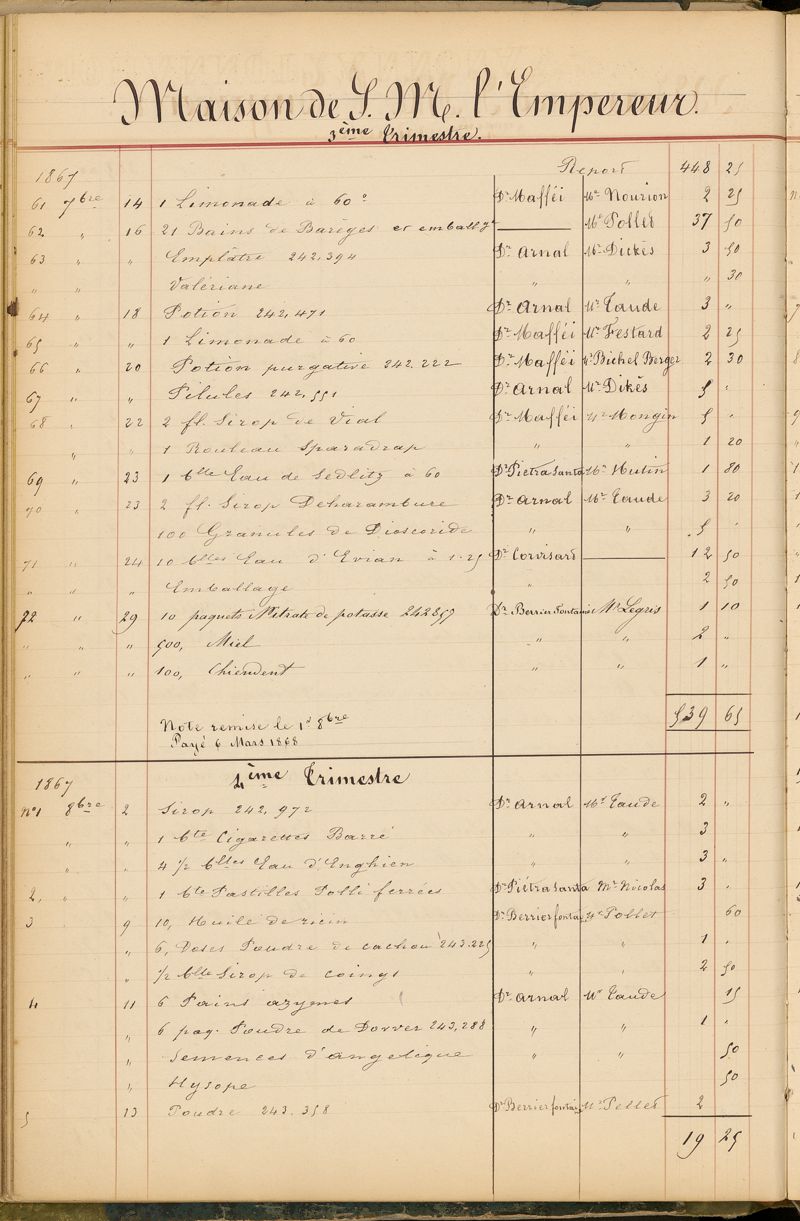 Maison de S. M. l'Empereur.
3ème Trimestre.
1867 Report 448 25
61 7bre 14 1 Limonade à 60° Dr Mafféi Mr Nourion 2 25
62 " 16 21 Bains de Barèges et emballge Mr Pollet 37 50
63 " " Emplâtre 242,394 Dr Arnal Mr Dickès 3 50
" " Valériane " " " 30
64 " 18 Potion 242,471 Dr Arnal Mr Taude 3 "
65 " " 1 Limonade à 60 Dr Mafféi Mr Festard 2 25
66 " 20 Potion purgative 242.222 Dr Mafféi Mr Bichel Berger 2 30
67 " " Pilules 242,551 Dr Arnal Mr Dikès 5 "
68 " 22 2 fl. Sirop de Vial Dr Mafféi Mr Mongin 5 "
" 1 Rouleau Sparadrap " " 1 20
69 " 23 1 blle Eau de Sedlitz à 60 Dr Pietra Santa Mr Hutin 1 80
70 " 23 2 fl. Sirop Deharambure Dr Arnal Mr Taude 3 20
100 Granules de Dioscoride " " 5 "
71 " 24 10 blles Eau d'Evian à 1.25 Dr Corvisart 12 50
" " Emballage " 2 50
72 " 29 10 paquets Nitrate de potasse 242859 Dr Berrier Fontaine Mr Legris 1 10
" " " 500, Miel " " 2 "
" " " 100, Chiendent " " 1 "
539 65
Note remise le 1er 8bre
Payé 6 Mars 1868
4ème Trimestre
1867
No1 8bre 2 Sirop 242,972 Dr Arnal Mr Taude 2 "
" " 1 bte Cigarettes Barré " " 3
" " 4 1/2 blles Eau d'Enghien " " 3 "
2, " " 1 bte Pastilles Polli ferrées Dr Piétra Santa Mr Nicolas 3 "
3 9 10, Huile de ricin Dr Berrier fontai Mr Pollet 60
" 6, Doses Poudre de cachou 243.225 " " 1 "
" 1/2 blle Sirop de coings " " 2 50
4 11 6 Pains azymes Dr Arnal Mr Taude 15
" 6 paq. Poudre de Dovver 243,288 " " 1 "
" Semences d'angelique " " 50
" Hysope 50
5 13 Poudre 243.358 Dr Berrier fontai Mr Pellet 2
19 25